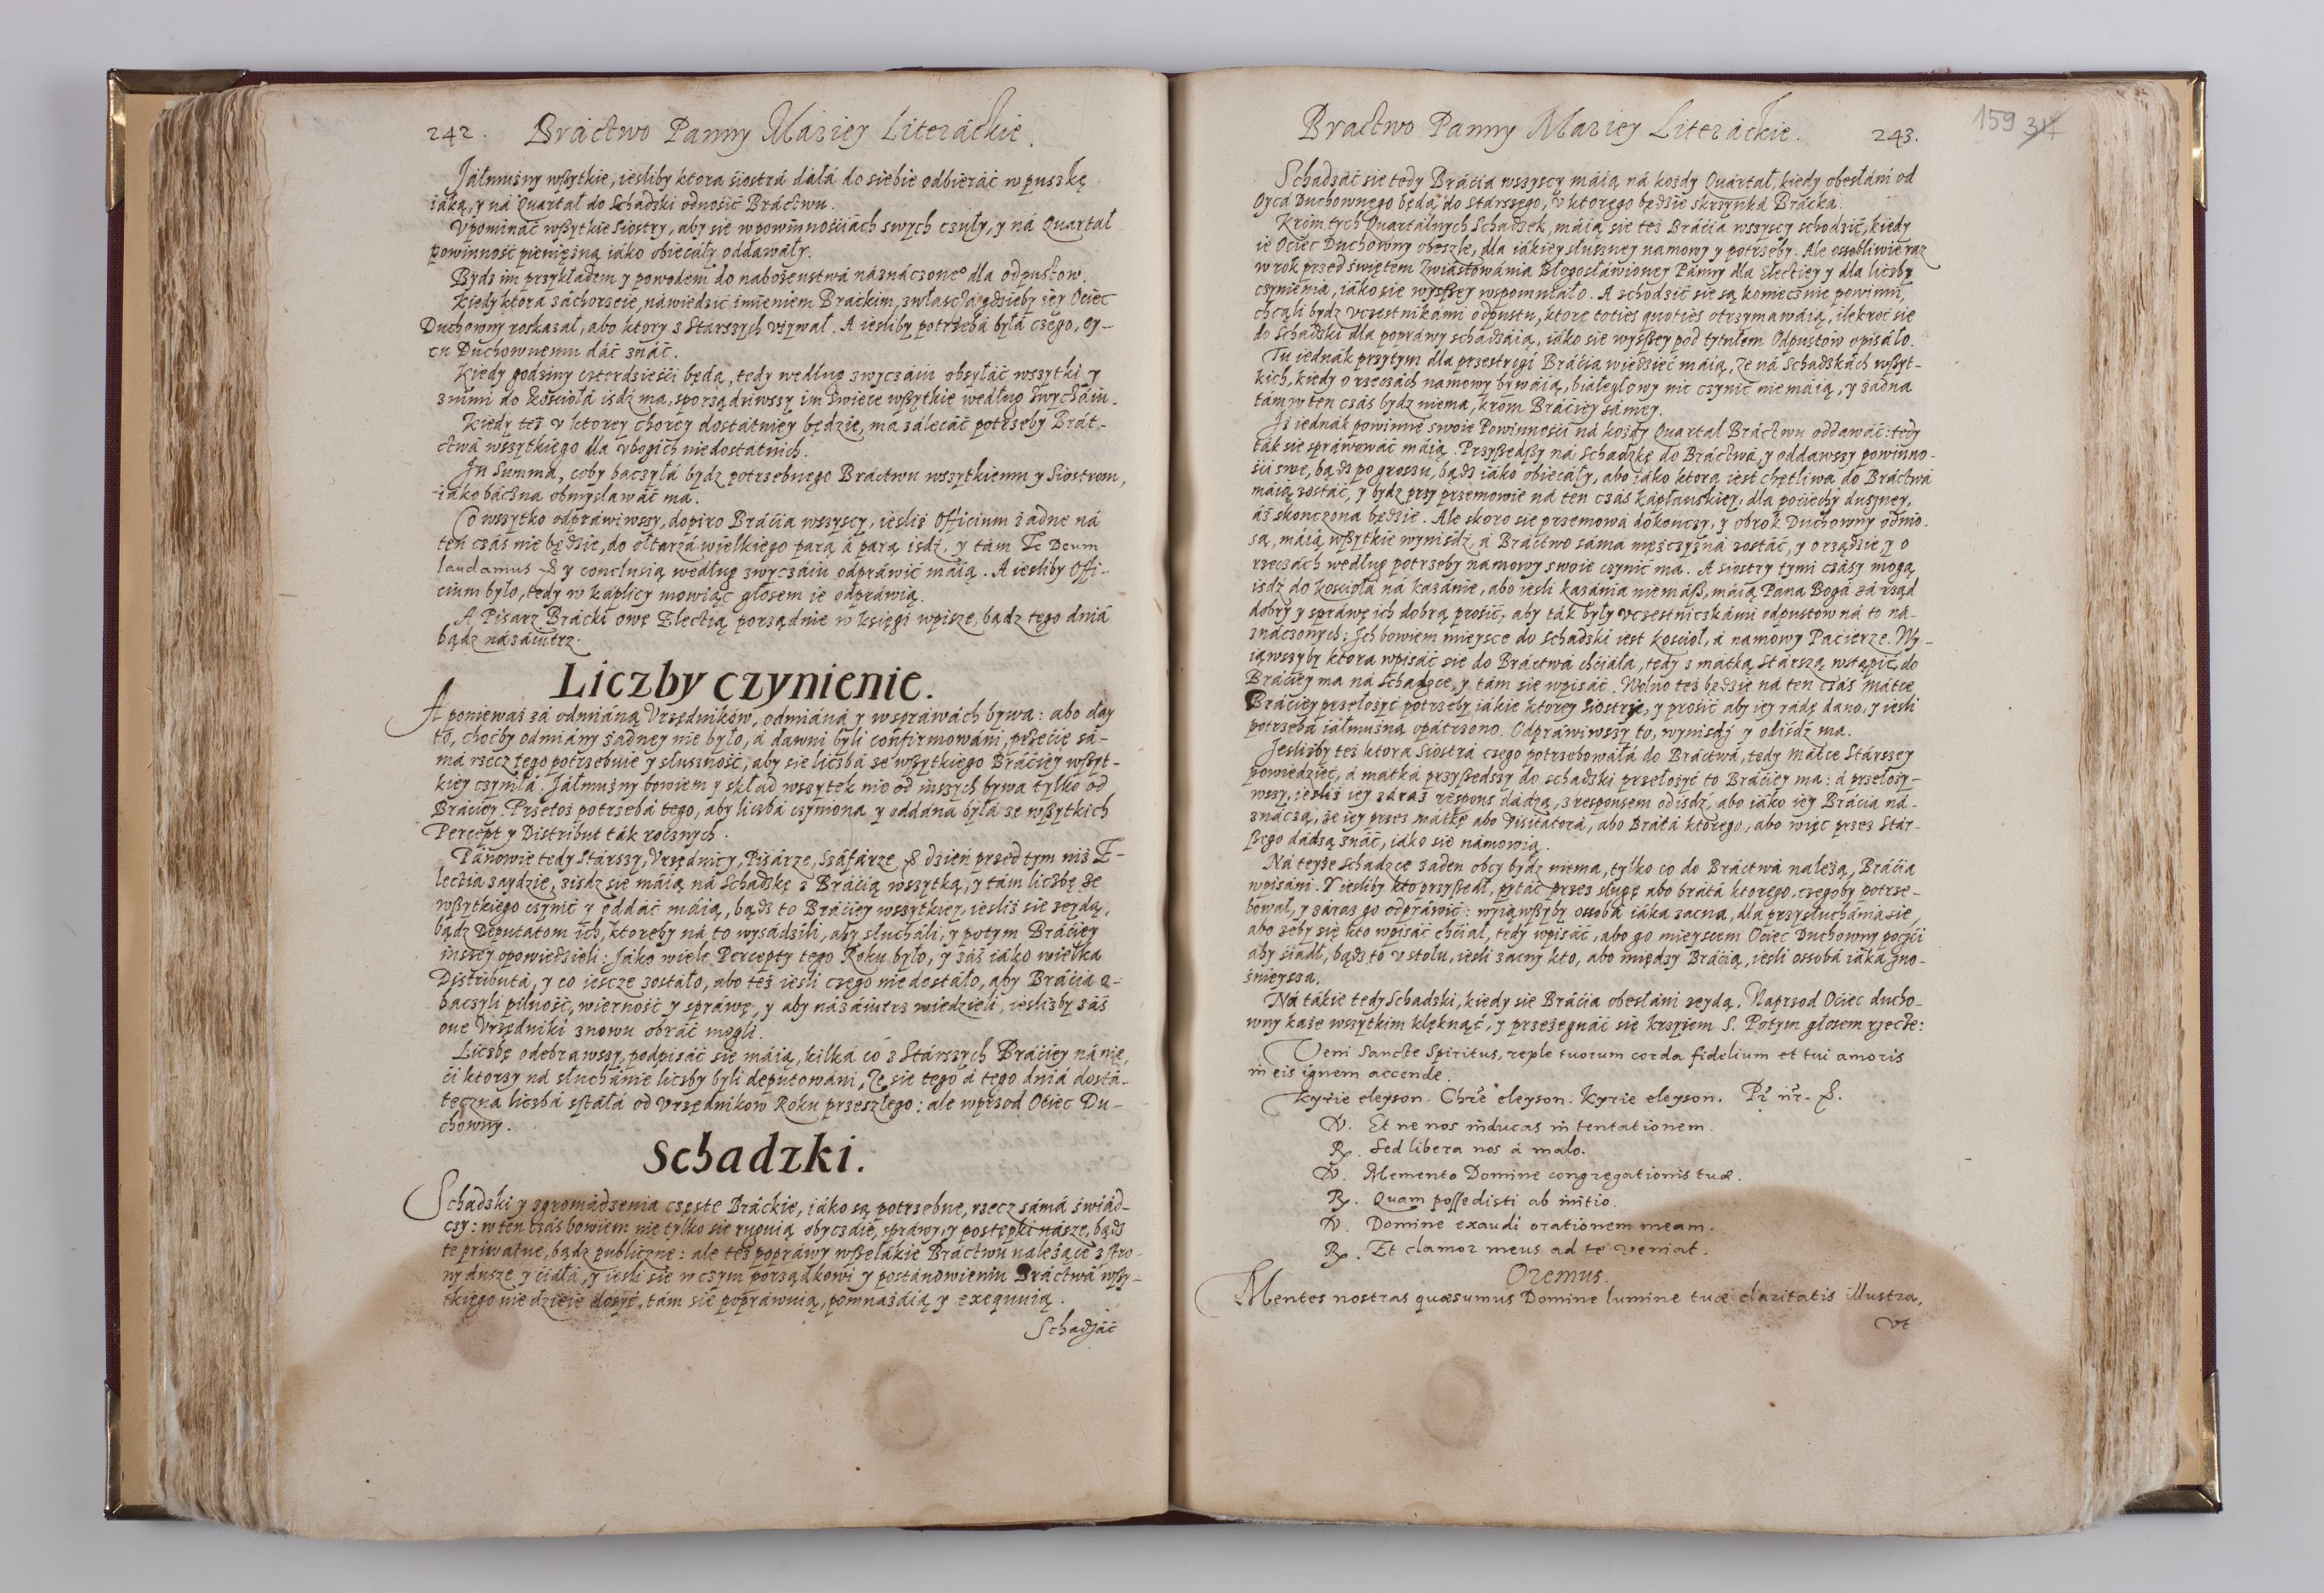 242. Bráctwo Panny Máriey Literáckie.
Jáłmużny wszytkie, iesliby ktora śiostrá dáłá do siebie odbieráć w puszkę
iáką, y ná Quartał do Schadzki odnośić Bráctwu.
Vpomináć wszytkie Siostry, aby sie w powinnośćiách swych czuły, y ná Quartał
powinność pieniężną iáko obiecáły oddawáły.
Bydz im przykłádem y powodem do nabożeństwá náznáczoneo dla odpustow.
Kiedy ktora záchorzeie, náwiedzić imieniem Bráckim, zwłaszczá gdzieby iey Ociec
Duchowny roskazał, abo ktory z Stárszych vżywał. A iesliby potrzebá byłá czego, Oy-
cu Duchownemu dáć znáć.
Kiedy godziny czterdzieśći będą, tedy według zwyczáiu obsyłáć wszytki y
z nimi do kośćiołá isdz ma, sporządziwszy im świece wszytkie według zwyczáiu.
Kiedy też v ktorey chorey dostátniey będzie, ma zálecáć potrzeby Brát-
ctwá wszytkiego dla vbogich niedostátnich.
In Summa, coby baczyłá bydz potrzebnego Bráctwu wszytkiemu y Siostrom,
iáko báczna obmyslawáć ma.
Co wszytko odpráwiwszy, dopiro Bráćia wszyscy, iesliż Officium żadne ná
ten czás nie będzie, do ołtarzá wielkiego parą á parą isdz, y tám Te Deum
laudamus &c y conclusią według zwyczáiu odpráwić máią. A iesliby Offi-
cium było, tedy w káplicy mowiąc głosem ie odpráwią.
A Pisarz Brácki owę Electią porządnie w księgi wpisze, bądz tego dniá
bądz názáiutrz.
Liczby czynienie.
A poniewaź zá odmiáną Vrzędników, odmiáná y w spráwách bywa: abo day
to, choćby odmiány żadney nie było, á dawni byli confirmowáni, przećię sá-
má rzecz tego potrzebuie y słuszność, aby sie liczbá ze wszytkiego Bráćiey wszyt-
kiey czyniłá. Jáłmużny bowiem y skład wszytek nie od inszych bywa tylko od
Bráćiey. Przetoż potrzebá tego, aby liczbá czyniona y oddána byłá ze wszytkich
Percept y Distribut ták rocznych.
Pánowie tedy Stárszy, Vrzędnicy, Pisárze, Száfárze &c dzień przed tym niż E-
lectia zaydzie, zisdz się máią ná Schadzkę z Bráćią wszytką, y tám liczbę ze
wszytkiego czynić y oddáć máią, bądz to Bráćiey wszytkiey, iesliż się zeydą,
bądz Deputatom ich, ktoreby ná to wysádzili, aby słucháli, y potym Bráćiey
inszey opowiedzieli: Jáko wiele Percepty tego Roku było, y záś iáko wielká
Distributá, y co iescze zostáło, abo też iesli czego nie dostáło, aby Bráćia o-
baczyli pilność, wierność y spráwę, y aby názáiutrz wiedzieli, iesliżby záś
one Vrzędniki znowu obráć mogli.
Liczbę odebrawszy, podpisáć się máią, kilká co z Stárszych Bráćiey ná nię,
ći ktorzy ná słuchánie liczby byli deputowáni, Że się tego á tego dniá dostá-
teczna liczbá sstáłá od Vrzędnikow Roku przeszłego: ale wprzod Ociec Du-
chowny.
Schadzki.
Schadzki y zgromádzenia częste Bráckie, iáko są potrzebne, rzecz sámá świád-
czy: w ten czás bowiem nie tylko sie rugują obyczáie, spráwy, y postępki násze, bądz
te priwatne, bądz publiczne: ale też popráwy wszelákie Bráctwu należące z stro-
ny dusze y ćiáłá, y iesli sie w czym porządkowi y postánowieniu Bráctwá wszy-
tkiego nie dzieie dosyć, tám sie popráwuią, pomnażáią y exequuią.
Schadzáć
Bractwo Panny Mariey Literáckie. 243.
159 317
Schadzáć sie tedy Bráćia wszyscy máią ná kożdy Quártał, kiedy obesłáni od
Oycá Duchownego będą do Stárszego, v ktorego będzie skrzynká Brácka.
Krom tych Quartálnych Schadzek, máią sie też Bráćia wszyscy schodzić, kiedy
ie Ociec Duchowny obeszle, dla iákiey słuszney namowy y potrzeby. Ale osobliwie raz
w rok przed świętem Zwiástowánia Błogosłáwioney Pánny dla Electiey y dla liczby
czynienia, iáko sie wyszszey wspomniáło. A schodzić sie są koniecznie powinni,
chcąli bydz vczestnikámi odpustu, ktore toties quoties otrzymawáią, ilekroć się
do Schadzki dla popráwy schadzáią, iáko się wyszszey pod tytułem Odpustow opisáło.
Tu iednák przytym dla przestrogi Bráćia wiedzieć máią, Że ná Schadzkách wszyt-
kich, kiedy o rzeczách namowy bywáią, białegłowy nic czynić nie máią, y żadna
tám w ten czás bydz niema, krom Bráćiey sámey.
Iż iednák powinne swoie Powinnośći ná kożdy Quartał Bráctwu oddawáć: tedy
ták sie spráwowáć máią. Przyszedszy ná Schadzkę do Bráctwá, y oddawszy powinno-
śći swe, bądz po groszu, bądz iáko obiecáły, abo iáko ktora iest chętliwa do Bráctwá
máią zostáć, y bydz przy przemowie ná ten czás kápłańskiey, dla poćiechy duszney,
áż skonczona będzie. Ale skoro sie przemowá dokończy, y obrok Duchowny odnio-
są, máią wszytkie wynisdz, á Bráctwo sáma męszczyzná zostáć, y o rządzie, y o
rzeczách według potrzeby namowy swoie czynić ma. A siostry tymi czásy mogą
isdz do kośćiołá ná kazánie, abo iesli kazánia niemász, máią Pána Bogá zá rząd
dobry y spráwę ich dobrą prośić, aby ták były vczestniczkámi odpustow ná to ná-
znáczonych: Ich bowiem mieysce do Schadzki iest kośćioł, á namowy Paćierze. Wy-
iąwszyby ktora wpisáć sie do Bráctwá chćiáłá, tedy z mátką Stárszą wstąpić do
Bráćiey ma ná Schadzce, y tám sie wpisáć. Wolno też będzie ná ten czás Mátce
Bráćiey przełożyć potrzeby iákie ktorey Siostry, y prośić aby iey rádę dano, y iesli
potrzebá iáłmużną opátrzono. Odpráwiwszy to, wynisdz y odiśdz ma.
Jesliżby też ktora Siostrá czego potrzebowáłá do Bráctwá, tedy Mátce Stárszey
powiedzieć, á mátká przyszedszy do schadzki przełożyć to Bráćiey ma: á przełoży-
wszy, iesliż iey záraz respons dádzą, z responsem odisdz, abo iáko iey Bráćia ná-
znáczą, że iey przez mátkę abo Visitatorá, abo Brátá ktorego, abo więc przez Stár-
szego dádzą znáć, iáko sie námowią.
Ná teyże Schadzce żaden obcy bydz niema, tylko co do Bráctwá należą, Bráćia
wpisáni. Y iesliby kto przyszedł, pytáć przez sługę abo brátá ktorego, czegoby potrze-
bował, y záraz go odpráwić: wyiąwszyby ossobá iáka zacna, dla przysłuchánia sie,
abo żeby się kto wpisáć chćiał, tedy wpisáć, abo go mieyscem Ociec Duchowny poczći
aby śiadł, bądz to v stołu, iesli zacny kto, abo między Bráćią, iesli ossobá iáka zno-
śnieysza.
Ná tákie tedy Schadzki, kiedy sie Bráćia obesłáni zeydą, Naprzod Ociec ducho-
wny każe wszytkim klęknąć, y przeżegnáć się krzyżem S. Potym głosem rzecze:
Veni Sancte Spiritus, reple tuorum corda fidelium et tui amoris
in eis ignem accende.
Kyrie eleyson. Chře eleyson. Kyrie eleyson. Pr̃ nr̃. &.
V. Et ne nos inducas in tentationem.
R. Sed libera nos á malo.
V. Memento Domine congregationis tuæ.
R. Quam possedisti ab initio.
V. Domine exaudi orationem meam.
R. Et clamor meus ad te veniat.
Oremus.
Mentes nostras quæsumus Domine lumine tuæ claritatis illustra,
vt